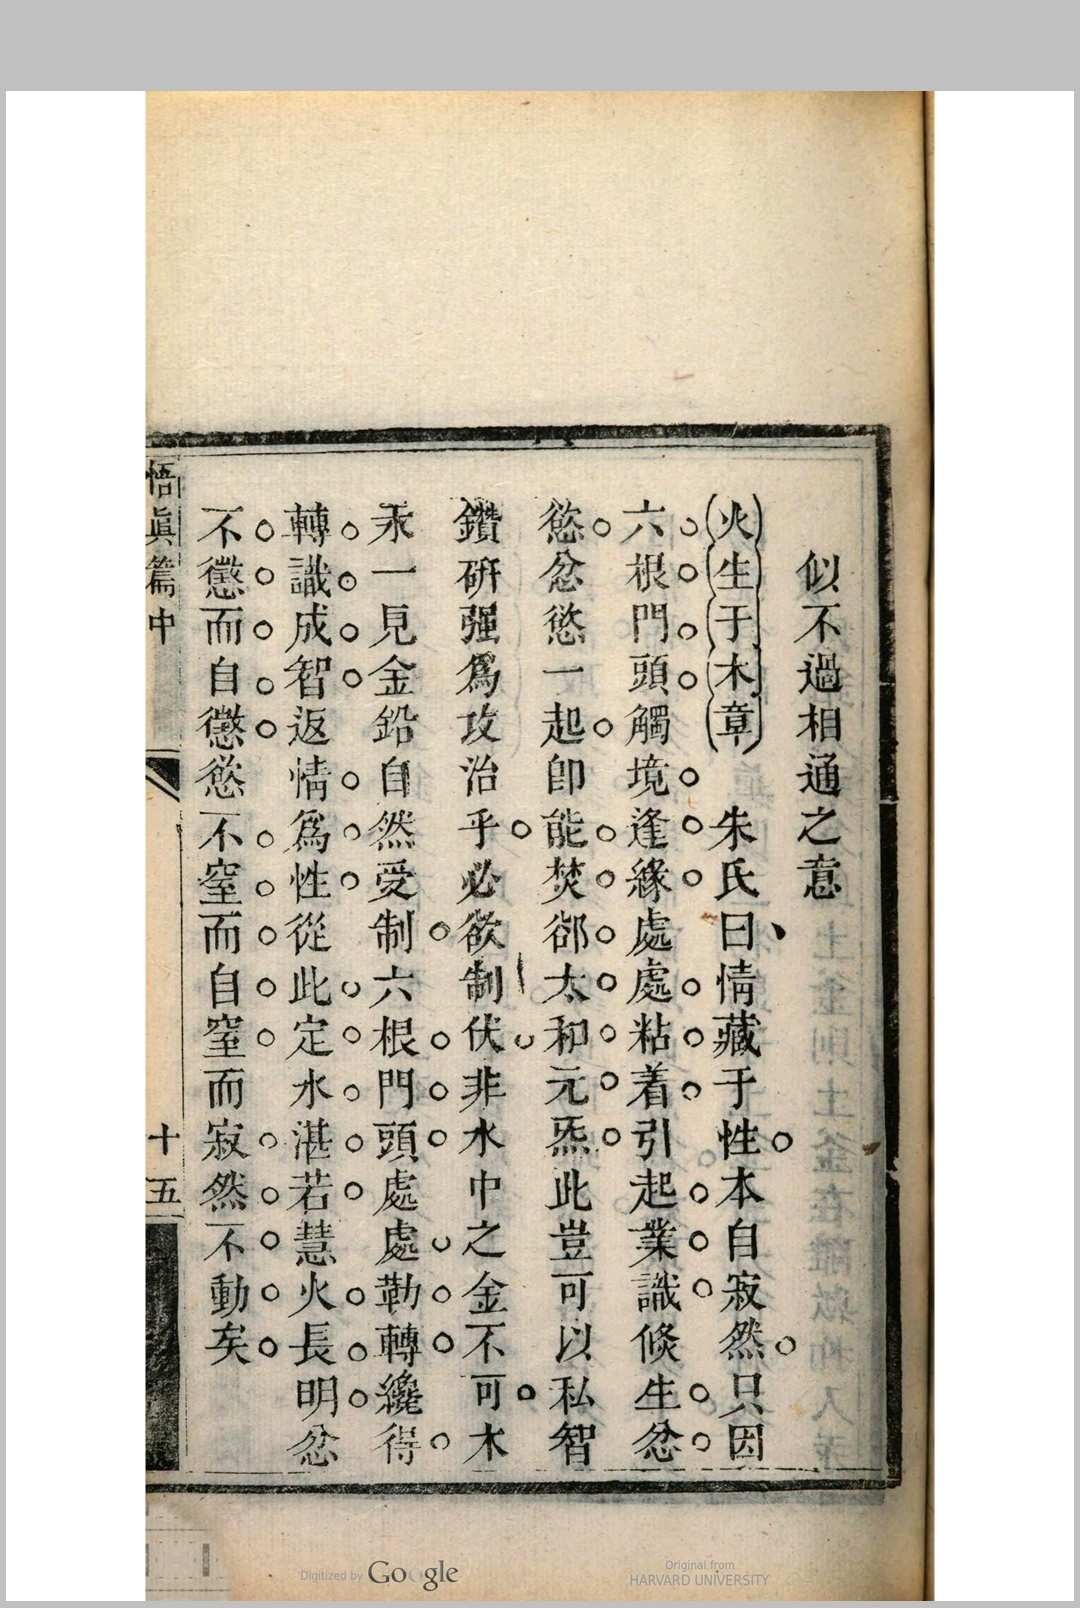 似不過相通之意
火生于木章　朱氏曰情藏于性本自寂然只因
六根門頭觸境逢緣處處粘着引起業識倐生忿
慾忿慾一起卽能焚卻太和元炁此豈可以私智
鑽硏强爲攻治乎必欲制伏非水中之金不可木
汞一見金鉛自然受制六根門頭處處勒轉纔得
轉識成智返情爲性從此定水湛若慧火長明忿
不懲而自懲慾不窒而自窒而寂然不動矣
悟眞篇中
十五
Digitized by Google
Original from
HARVARD UNIVERSITY